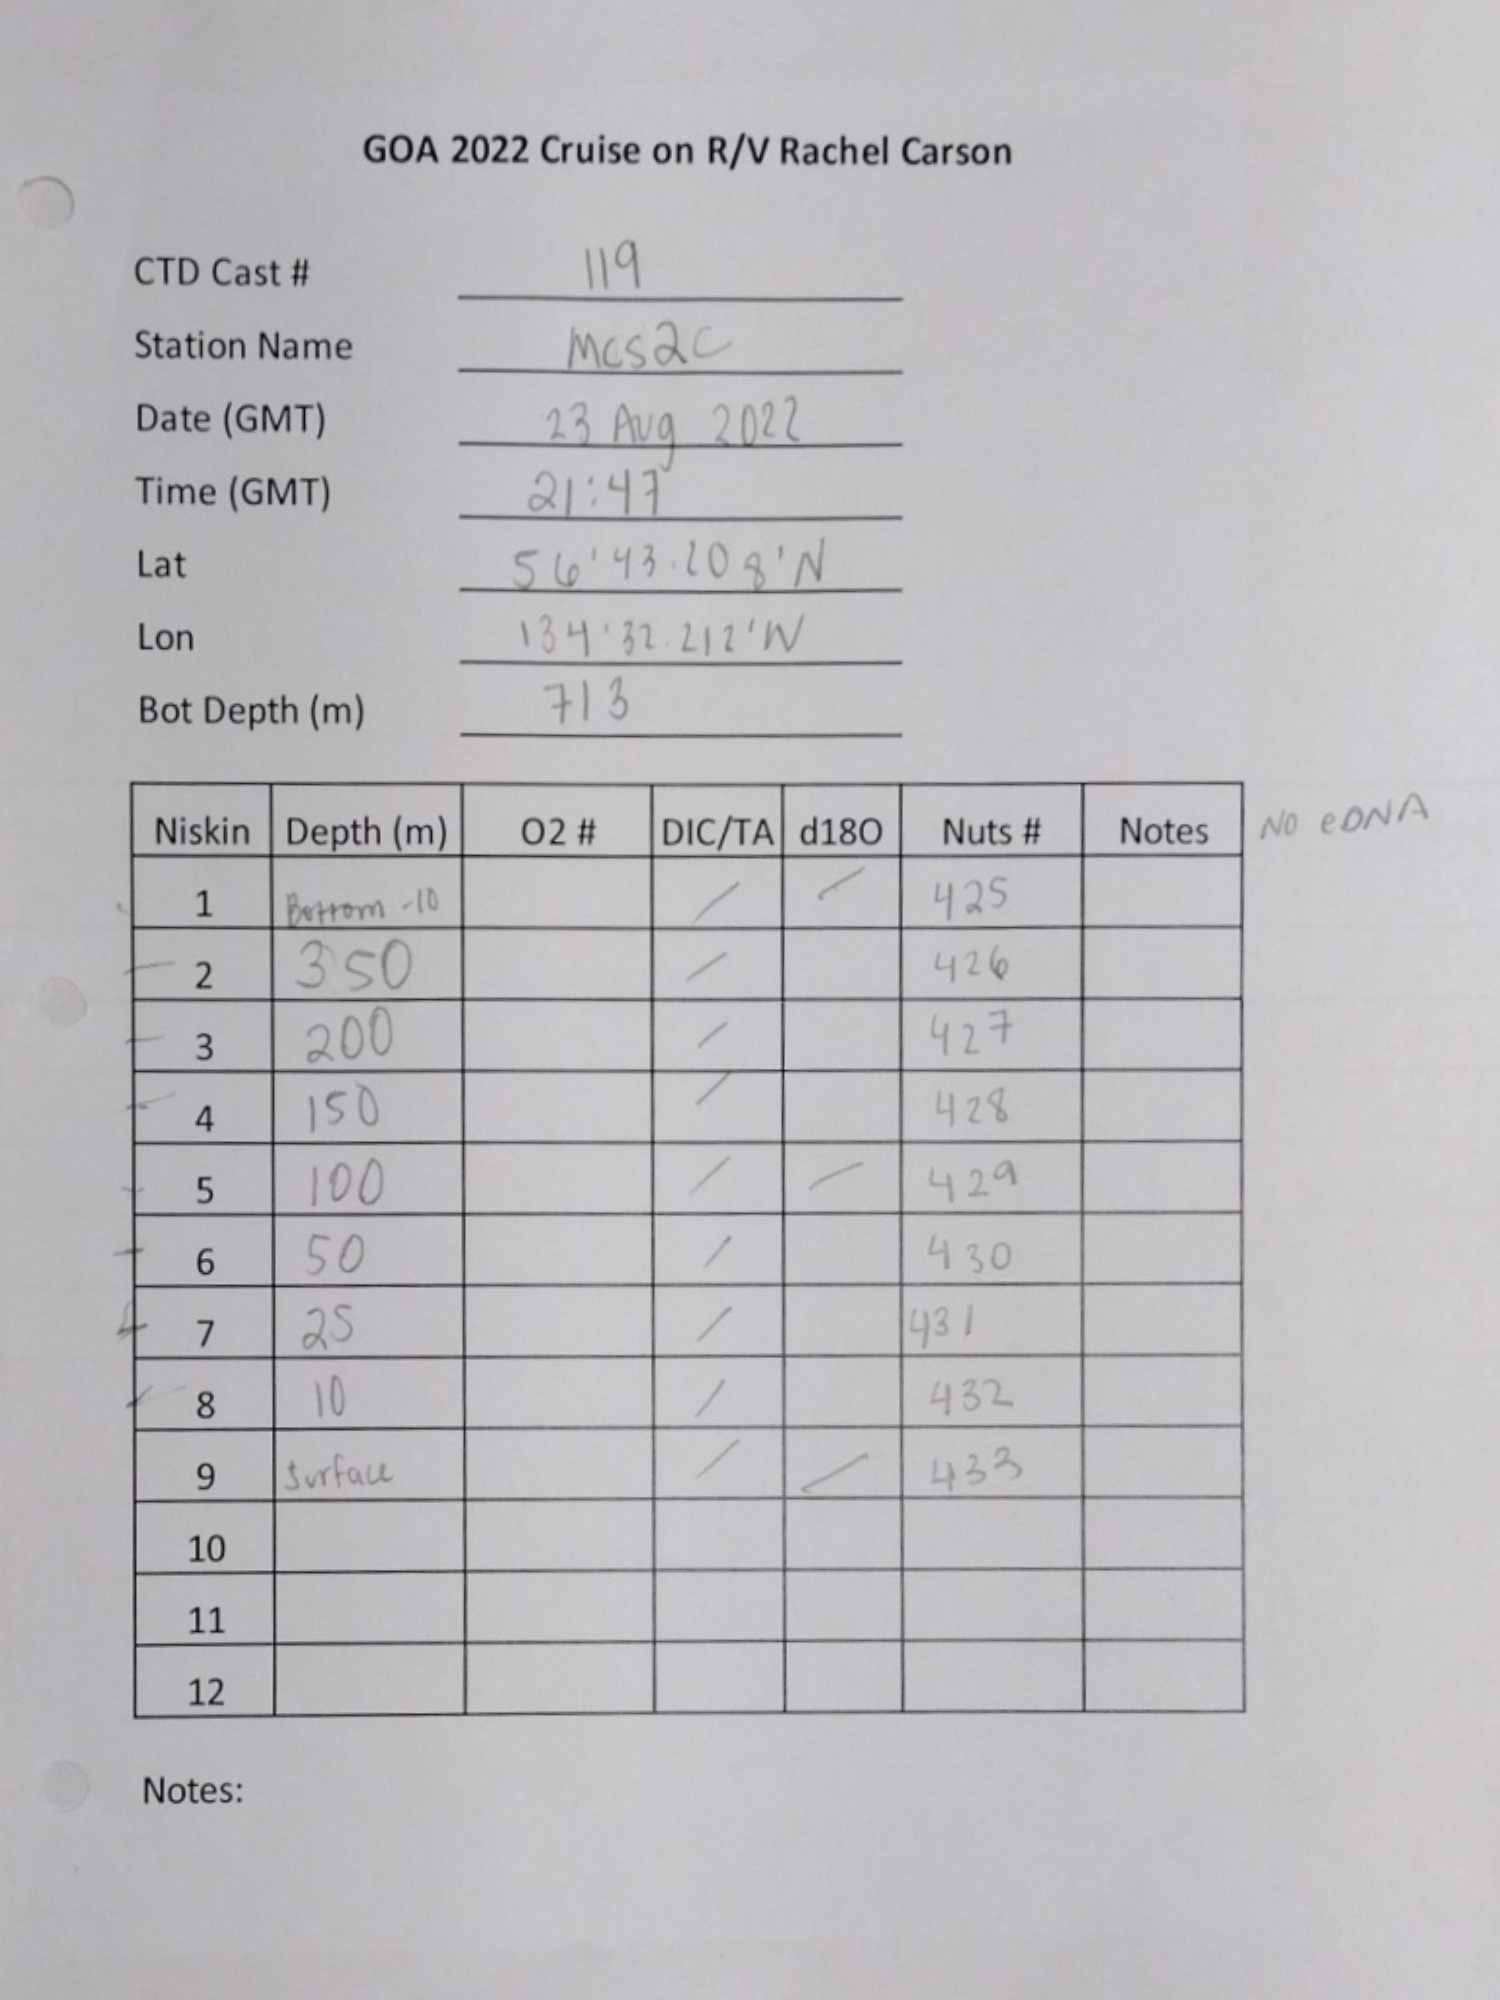 GOA 2022 Cruise on R/V Rachel Carson
CTD Cast # 119
Station Name MCS2C
Date (GMT) 23 Aug 2022
Time (GMT) 21:47
Lat 56'43.208'N
Lon 134'32.212'W
Bot Depth (m) 713
Niskin Depth (m) O2 # DIC/TA d18O Nuts # Notes NO eDNA
1 Bottom -10 / / 425
2 350 / 426
3 200 / 427
4 150 / 428
5 100 / / 429
6 50 / 430
7 25 / 431
8 10 / 432
9 Surface / / 433
10
11
12
Notes: